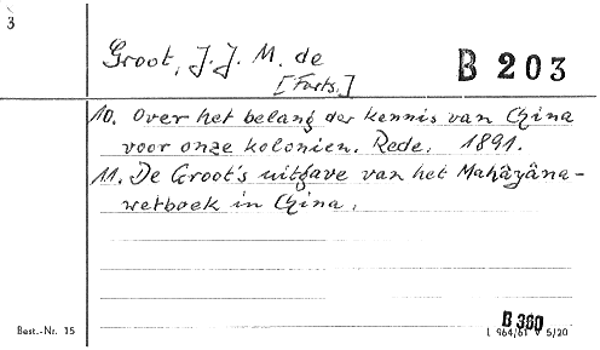 3
Groot, J. J. M. de
[Forts.]
B 203
10. Over het belang der kennis van China
voor onze kolonien. Rede. 1891.
11. De Groot's uitgave van het Mahâyâna-
wetboek in China.
Best.-Nr. 15
B 360
L 964/61 V 5/20